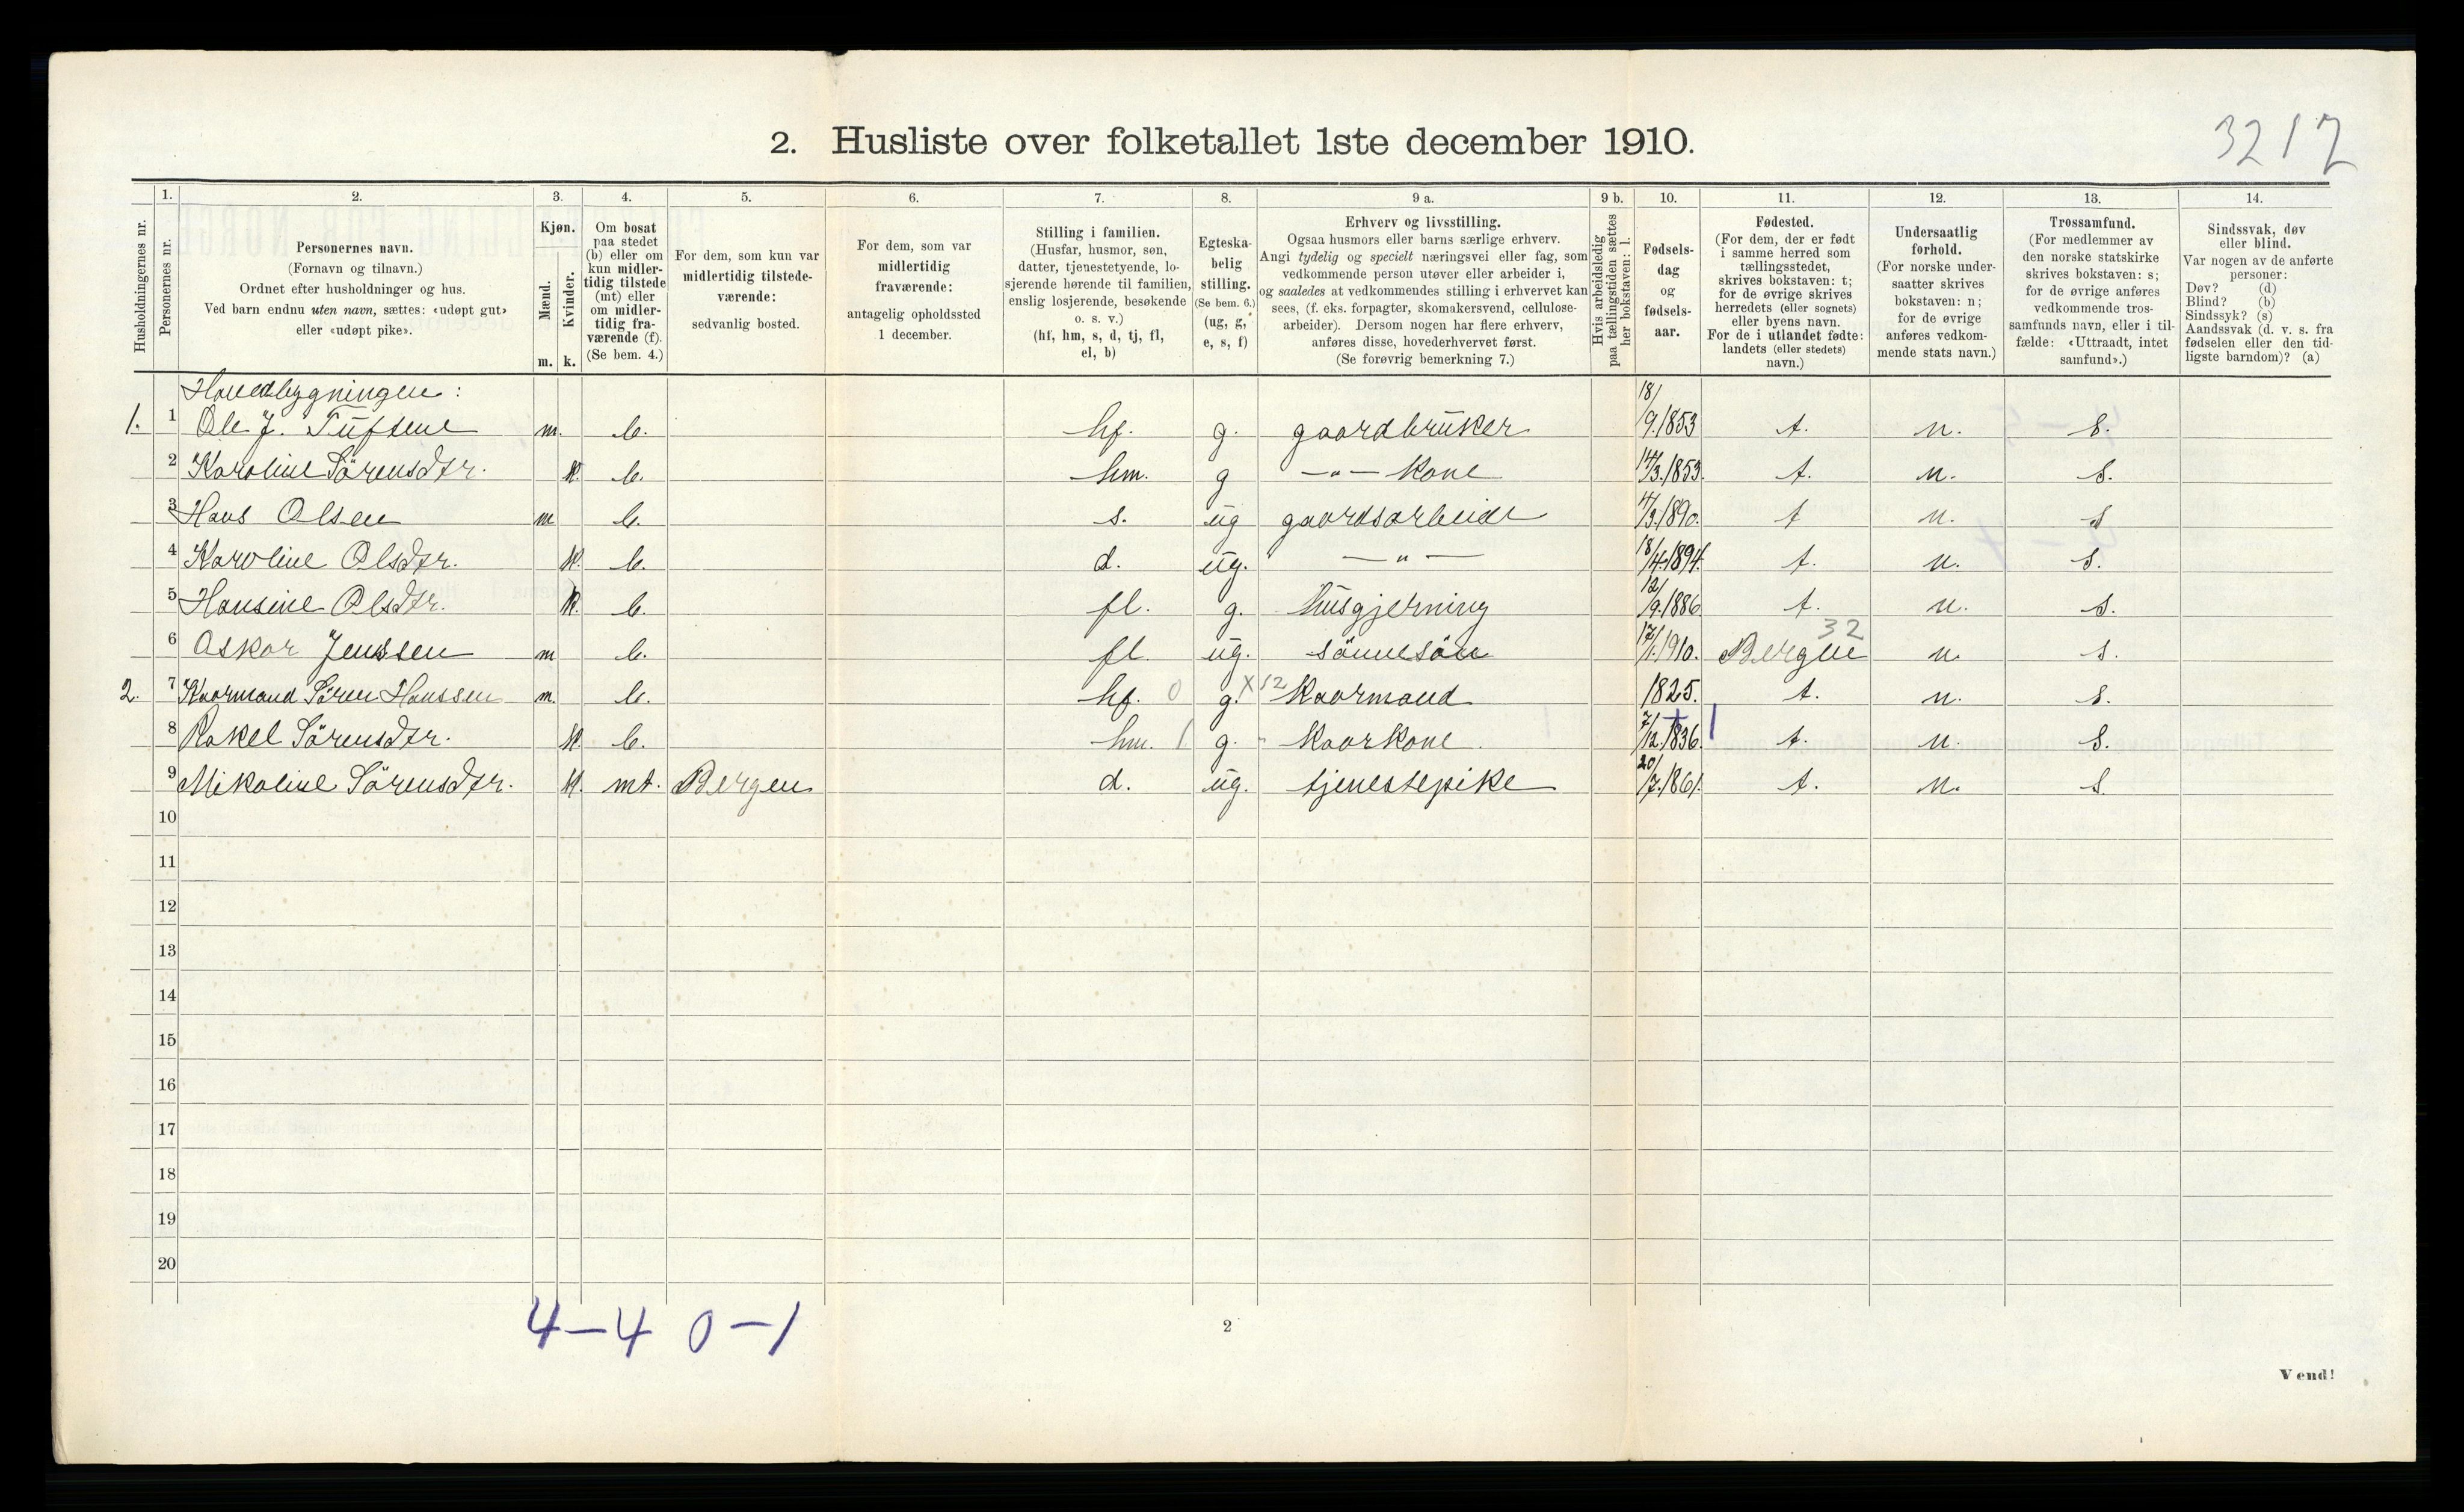 3217
2. Husliste over folketallet 1ste december 1910.
Husholdningernes nr.
1. Personernes nr.
2. Personernes navn. (Fornavn og tilnavn.) Ordnet efter husholdninger og hus. Ved barn endnu uten navn, sættes: «udøpt gut» eller «udøpt pike».
3. Kjøn. Mænd. m. Kvinder. k.
4. Om bosat paa stedet (b) eller om kun midlertidig tilstede (mt) eller om midlertidig fraværende (f). (Se bem. 4.)
5. For dem, som kun var midlertidig tilstedeværende: sedvanlig bosted.
6. For dem, som var midlertidig fraværende: antagelig opholdssted 1 december.
7. Stilling i familien. (Husfar, husmor, søn, datter, tjenestetyende, losjerende hørende til familien, enslig losjerende, besøkende o. s. v.) (hf, hm, s, d, tj, fl, el, b)
8. Egteskabelig stilling. (Se bem. 6.) (ug, g, e, s, f)
9 a. Erhverv og livsstilling. Ogsaa husmors eller barns særlige erhverv. Angi tydelig og specielt næringsvei eller fag, som vedkommende person utøver eller arbeider i, og saaledes at vedkommendes stilling i erhvervet kan sees, (f. eks. forpagter, skomakersvend, cellulosearbeider). Dersom nogen har flere erhverv, anføres disse, hovederhvervet først. (Se forøvrig bemerkning 7.)
9 b. Hvis arbeidsledig paa tællingstiden sættes her bokstaven: l.
10. Fødselsdag og fødselsaar.
11. Fødested. (For dem, der er født i samme herred som tællingsstedet, skrives bokstaven: t; for de øvrige skrives herredets (eller sognets) eller byens navn. For de i utlandet fødte: landets (eller stedets) navn.)
12. Undersaatlig forhold. (For norske undersaatter skrives bokstaven: n; for de øvrige anføres vedkommende stats navn.)
13. Trossamfund. (For medlemmer av den norske statskirke skrives bokstaven: s; for de øvrige anføres vedkommende trossamfunds navn, eller i tilfælde: «Uttraadt, intet samfund».)
14. Sindssvak, døv eller blind. Var nogen av de anførte personer: Døv? (d) Blind? (b) Sindssyk? (s) Aandssvak (d. v. s. fra fødselen eller den tidligste barndom)? (a)
Hovedbygningen:
1. 1 Ole J. Tufsene m. b. hf. g. gaardbruker 18/9.1853 t. n. s.
2 Karoline Sörensdtr. k. b. hm. g —"— Kone 14/3.1853. t. n. s.
3 Hans Olsen m b. s. ug gaardsarbeide 4/3.1890. t n. s
4 Karoline Olsdtr. k. b. d. ug. —"— 18/4.1894. t. n. s.
5 Hansine Olsdtr. k. b. fl. g. husgjerning 12/9.1886 t. n. s.
32
6 Oskar Jenssen m b. fl. ug. sönnesön 17/1.1910. Bergen n. s.
2. 7 Kaarmand Sören Hanssen m. b. hf. 0 g. X12 Kaarmand 1825. t. n. s.
8 Rakel Sörensdtr. k. b. hm. 1 g. Kaarkone. 7/12.1836. t. n. s.
9 Mikoline Sörensdtr. k. mt. Bergen d. ug. tjenestepike 20/7.1861. t. n. s.
10
11
12
13
14
15
16
17
18
19
20
4—4 0—1
2
Vend!